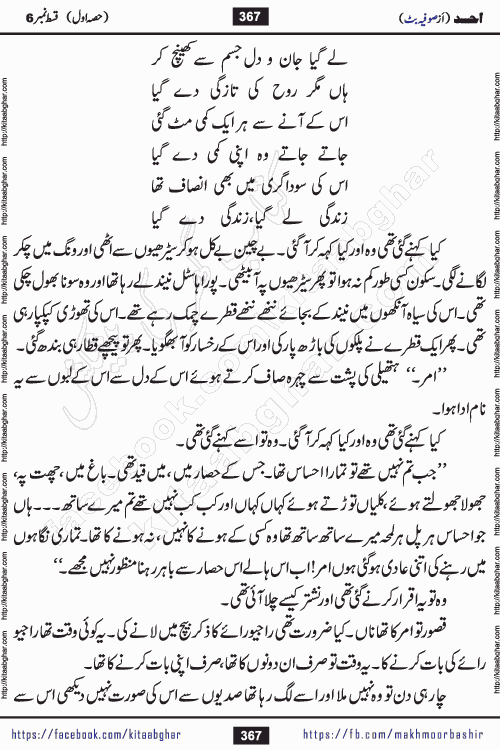 احد (از صوفیہ بٹ) 367 (حصہ اول) قسط نمبر 6
لے گیا جان و دل جسم سے کھینچ کر
ہاں مگر روح کی تازگی دے گیا
اس کے آنے سے ہر ایک کمی مٹ گئی
جاتے جاتے وہ اپنی کمی دے گیا
اس کی سوداگری میں بھی انصاف تھا
زندگی لے گیا، زندگی دے گیا
کیا کہنے گئی تھی وہ اور کیا کہہ کر آ گئی۔ بے چین بے کل ہو کر سیڑھیوں سے اٹھی اور ونگ میں چکر
لگانے لگی۔ سکون کسی طور کم نہ ہوا تو پھر سیڑھیوں پہ آ بیٹھی۔ پورا ہاسٹل نیند لے رہا تھا اور وہ سونا بھول چکی
تھی۔ اس کی سیاہ آنکھوں میں نیند کے بجائے ننھے ننھے قطرے چمک رہے تھے۔ اس کی تھوڑی کپکپا رہی
تھی۔ پھر ایک قطرے نے پلکوں کی باڑھ پار کی اور اس کے رخسار کو آ بھگویا۔ پھر تو پیچھے قطار ہی بندھ گئی۔
”امر۔“ ہتھیلی کی پشت سے چہرہ صاف کرتے ہوئے اس کے دل سے اس کے لبوں سے یہ
نام ادا ہوا۔
کیا کہنے گئی تھی وہ اور کیا کہہ کر آ گئی۔ وہ تو اسے کہنے گئی تھی۔
”جب تم نہیں تھے تو تمہارا احساس تھا۔ جس کے حصار میں، میں قید تھی۔ باغ میں، چھت پہ،
جھولا جھولتے ہوئے، کلیاں توڑتے ہوئے کہاں کہاں اور کب کب نہیں تھے تم میرے ساتھ۔۔۔ ہاں
جو احساس ہر پل ہر لمحہ میرے ساتھ ساتھ تھا وہ کسی کے ہونے کا نہیں، نہ ہونے کا تھا۔ تمہاری نگاہوں
میں رہنے کی اتنی عادی ہو گئی ہوں امر! اب اس ہالے اس حصار سے باہر رہنا منظور نہیں مجھے۔“
وہ تو یہ اقرار کرنے گئی تھی اور نشتر کیسے چلا آئی تھی۔
قصور تو امر کا تھا ناں۔ کیا ضرورت تھی راجیو رائے کا ذکر بیچ میں لانے کی۔ یہ کوئی وقت تھا راجیو
رائے کی بات کرنے کا۔ یہ وقت تو صرف ان دونوں کا تھا، صرف اپنی بات کرنے کا تھا۔
چار ہی دن تو وہ نہیں ملا اور اسے لگ رہا تھا صدیوں سے اس کی صورت نہیں دیکھی اس سے
https://facebook.com/kitaabghar 367 https://fb.com/makhmoorbashir
http://kitaabghar.com